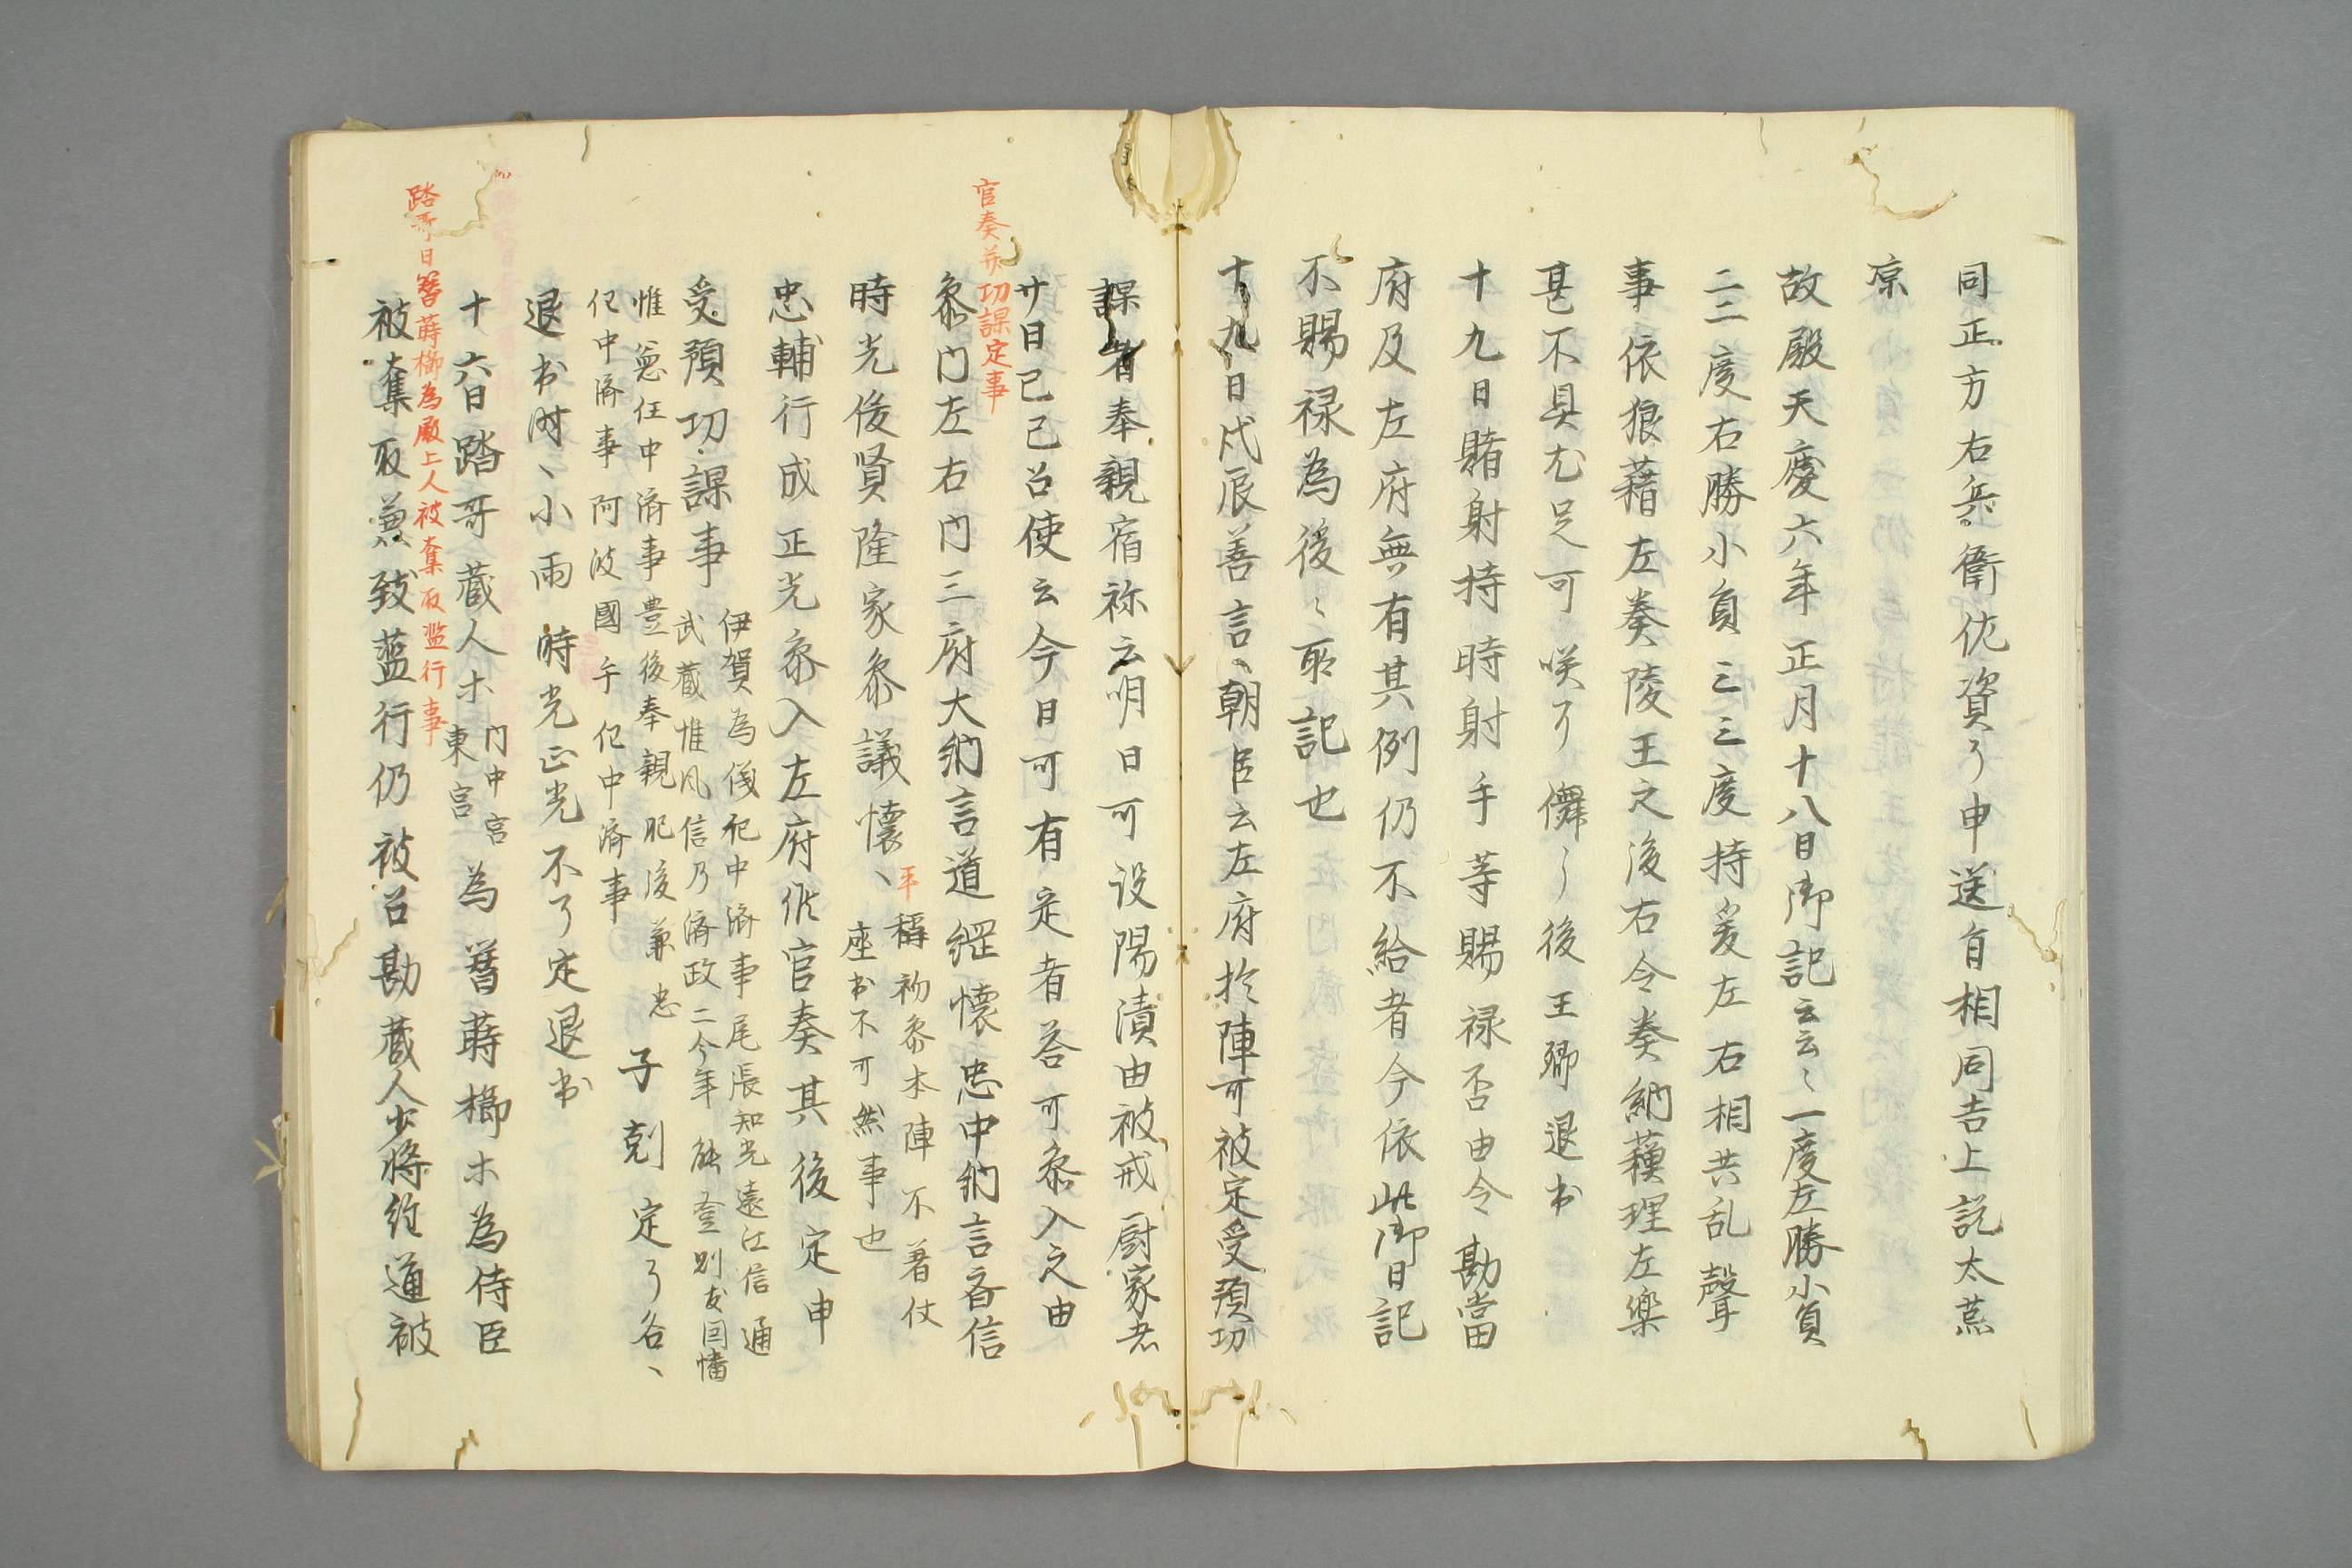 同正方右兵衛佐資了申送自相同吉上説太蒸
凉
故殿天慶六年正月十八日御記云云〻一度左勝小負
二二度右勝小負三三度持爰左右相共乱聲
事依狼藉左奏陵王之後右令奏納蘓理左楽
甚不具尤足可咲了儛〻後王卿退出
十九日賭射持時射手等賜禄否由令勘當
府及左府無有其例仍不給者今依此御日記
不賜禄為後〻所記也
十九日戊辰善言、朝臣云左府於陣可被定受領功
課者奉親宿祢云明日可设陽漬由被戒厨家者
官奏并功課定事
廿日己巳召使云今日可有定者荅可参入之由
参门左右门三府大納言道綱懐忠中納言斉信
時光俊賢隆家参議懐、平
稱初参本陣不著仗
座出不可然事也
忠輔行成正光参入左府候官奏其後定申
受領功課事
伊賀為儀已中濟事尾張知光遠江信通
武蔵惟風信乃濟政二今年能登則友因幡
惟憲任中濟事豊後奉親肥後兼忠
已中濟事阿波國午已中濟事
子剋定了各、
退出时、小雨時光正光不了定退出
踏哥日簪蒔櫛為殿上人被奪取濫行事
十六日踏哥蔵人木
门中宮
東宮
為簪蒔櫛木為侍臣
被奪取兼致藍行仍被召勘蔵人少将経通被